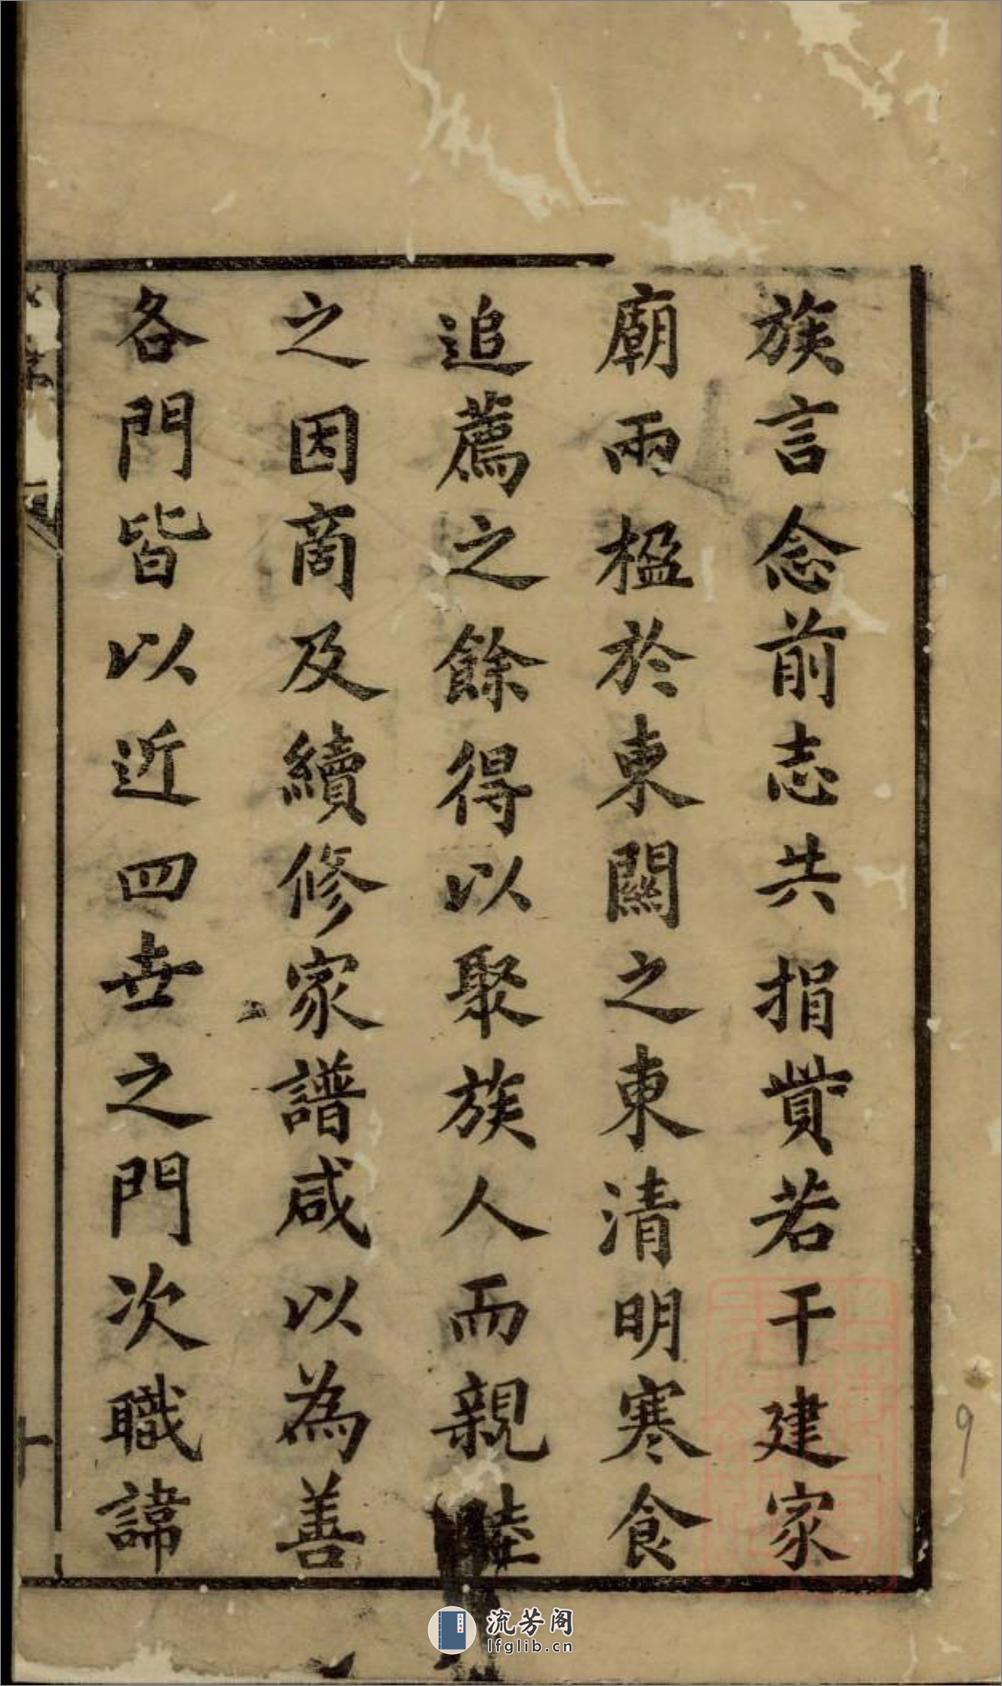 族言念前志共捐貲若干建家
廟兩楹於東關之東清明寒食
追薦之餘得以聚族人而親睦
之因商及續修家譜咸以為善
各門皆以近四世之門次職諱
9
流芳阁
lfglib.cn